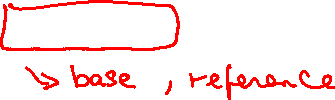 ↳ base , reference